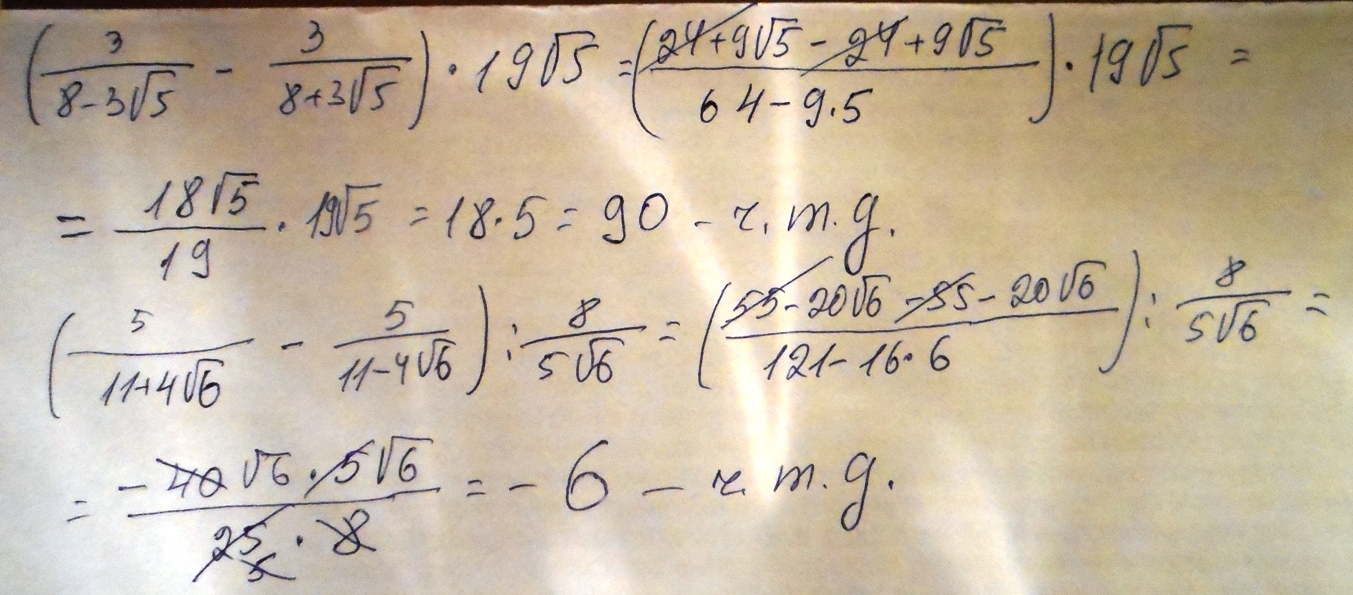 (3/(8-3√5) - 3/(8+3√5)) · 19√5 = ((24+9√5-24+9√5)/(64-9·5)) · 19√5 =
= 18√5/19 · 19√5 = 18·5 = 90 - ч. т. д.
(5/(11+4√6) - 5/(11-4√6)) : 8/(5√6) = ((55-20√6-55-20√6)/(121-16·6)) : 8/(5√6) =
= (-40√6·5√6)/(25·8) = -6 - ч. т. д.
5